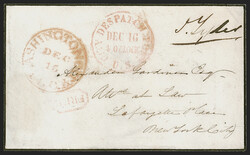 J. Tyler
WASHINGTON
DEC
16
DESPATCH
DEC 16
U.S.
FREE
Alexander Gardiner Esq
Atty at Law
Lafayette Place
New York City